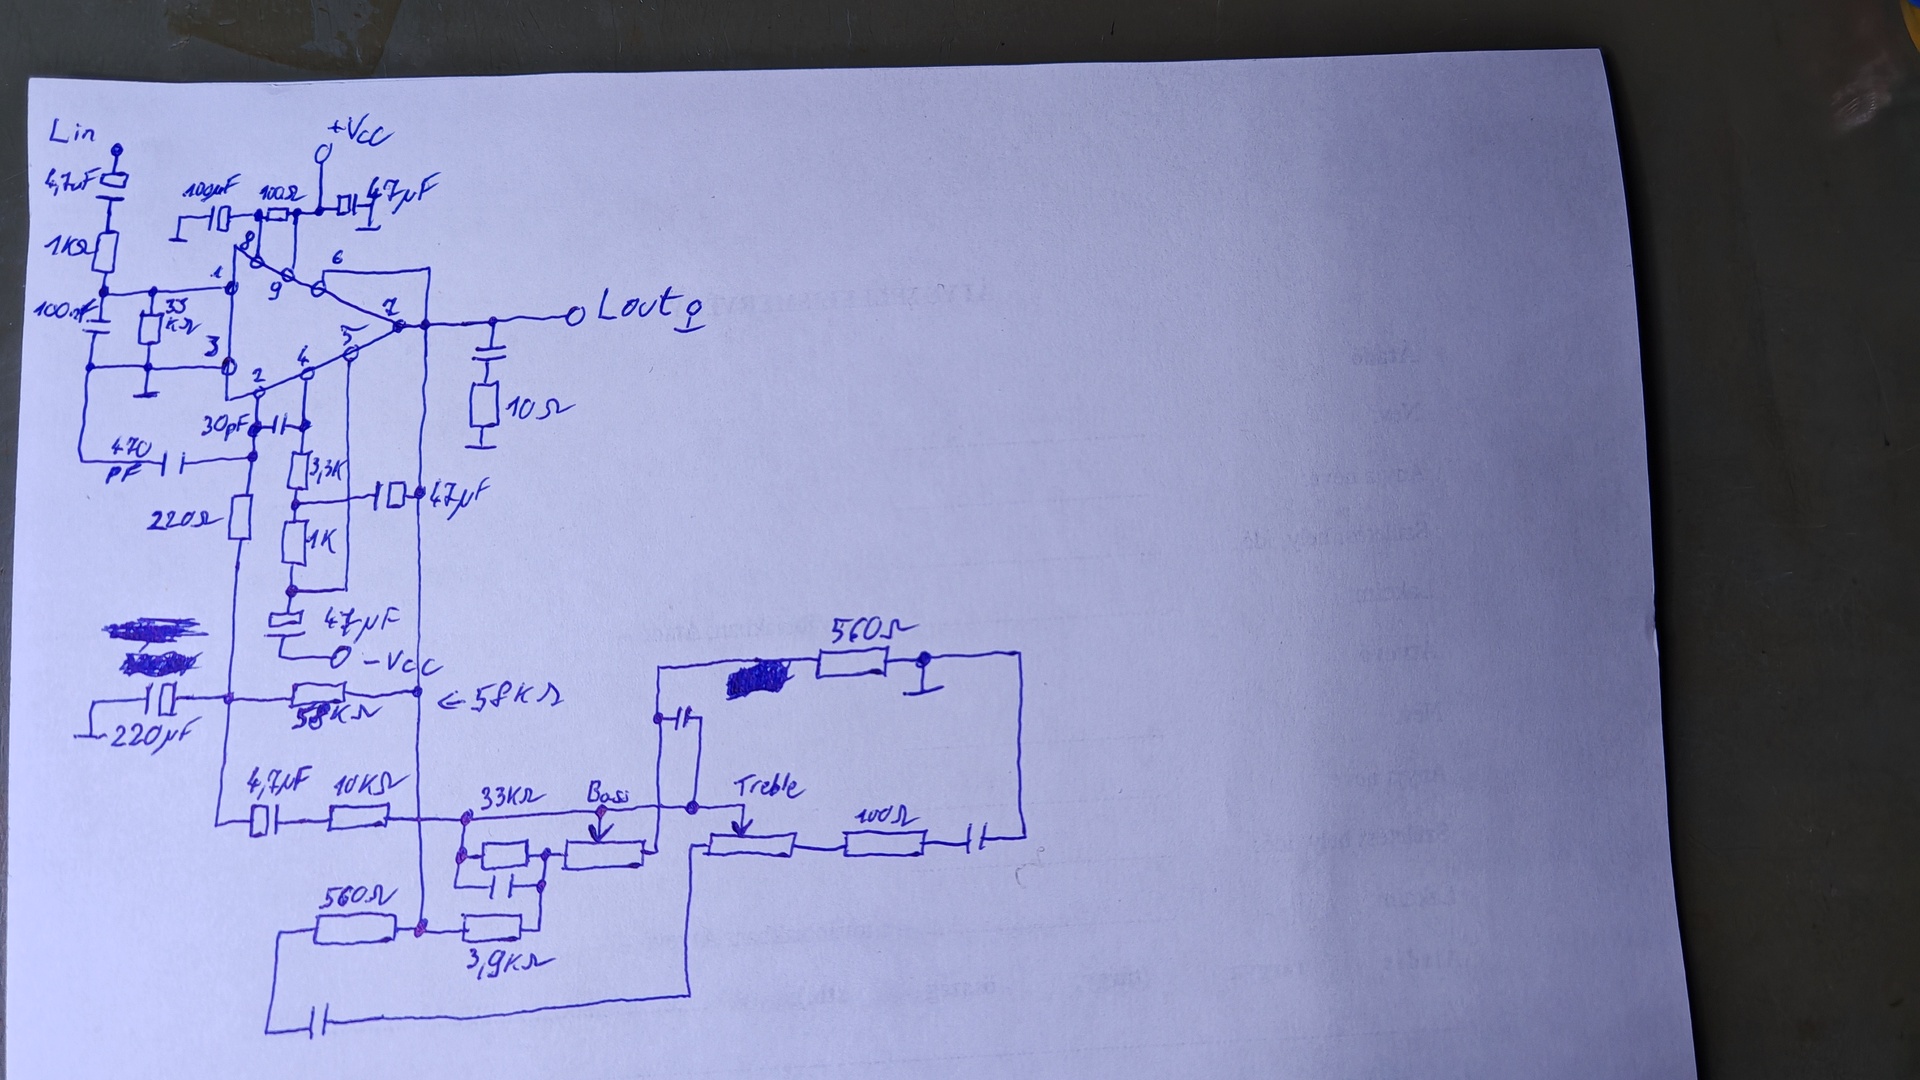 Lin
+Vcc
4,7µF
100µF
100Ω
47µF
1KΩ
8
1
9
6
100nF
33
KΩ
7
Lout
3
5
4
2
30pF
10Ω
470
pF
3,3K
220Ω
47µF
1K
47µF
-Vcc
560Ω
58KΩ
←58KΩ
220µF
4,7µF
10KΩ
33KΩ
Bass
Treble
100Ω
560Ω
3,9KΩ